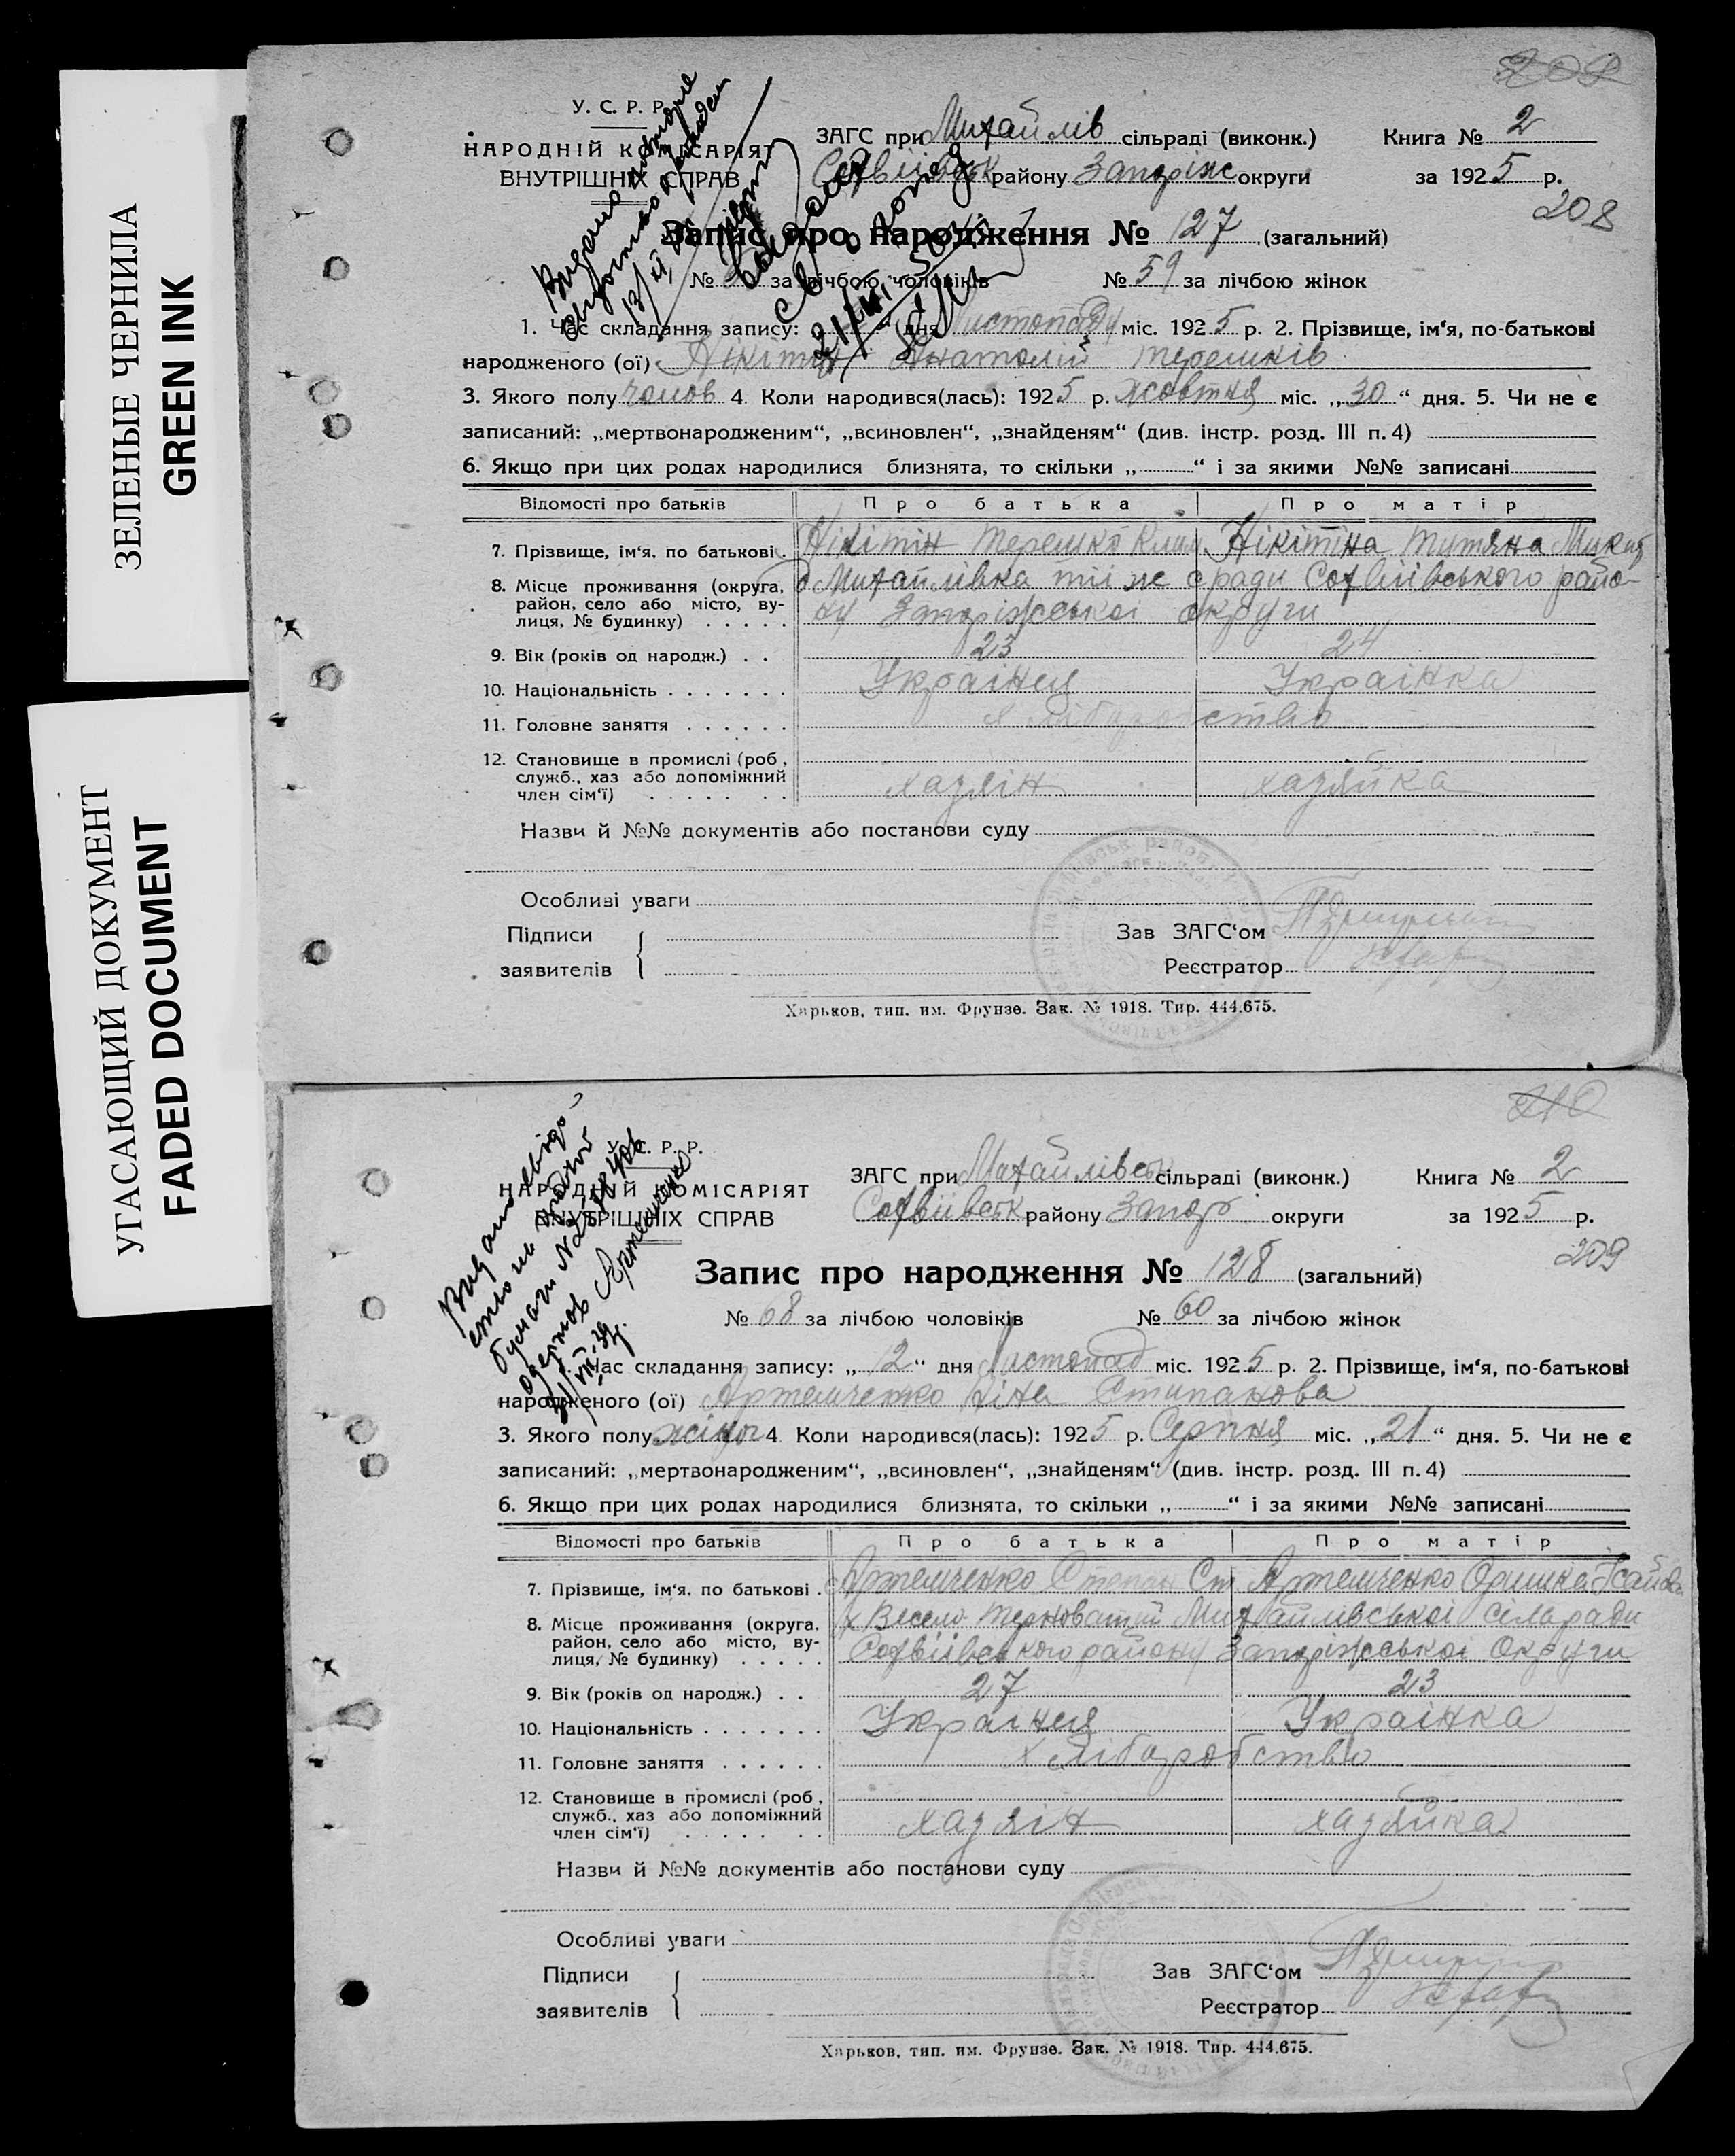 ЗЕЛЕНЫЕ ЧЕРНИЛА
GREEN INK
УГАСАЮЩИЙ ДОКУМЕНТ
FADED DOCUMENT
209
У. С. Р. Р.
НАРОДНІЙ КОМІСАРІЯТ
ВНУТРІШНІХ СПРАВ
ЗАГС при Михайлів сільраді (виконк.) Книга № 2
Софвіївськ району Запоріжс округи за 1925 р.
208
Запис про народження № 127 (загальний)
№ за лічбою чоловіків № 59 за лічбою жінок
1. Час складання запису: „ “ дня Листопаду міс. 1925 р. 2. Прізвище, ім‘я, по-батькові
народженого (ої) Нікітин Анатолій Терешків
3. Якого полу чолов 4. Коли народився(лась): 1925 р. жовтня міс. „30“ дня. 5. Чи не є
записаний: „мертвонародженим“, „всиновлен“, „знайденям“ (див. інстр. розд. III п. 4)
6. Якщо при цих родах народилися близнята, то скільки „ “ і за якими №№ записані
Відомості про батьків Про батька Про матір
7. Прізвище, ім‘я, по батькові . Нікітін Терешко Клим Нікітіна Титяна Микит
8. Місце проживання (округа, район, село або місто, вулиця, № будинку) с Михайлівка тії ж с ради Софвіївського райо-
ну Запоріжської округи
9. Вік (років од народж.) . . 23 24
10. Національність . . . . . . . Українця Українка
11. Головне заняття . . . . . . Хліборобство
12. Становище в промислі (роб, служб., хаз або допоміжний член сім‘ї) хазяін хазяйка
Назви й №№ документів або постанови суду
Особливі уваги
Підписи заявителів
Зав ЗАГС‘ом
Реєстратор
Харьков, тип. им. Фрунзе. Зак. № 1918. Тир. 444.675.
210
У. С. Р. Р.
НАРОДНІЙ КОМІСАРІЯТ
ВНУТРІШНІХ СПРАВ
ЗАГС при Михайлівськ сільраді (виконк.) Книга № 2
Софвіївськ району Запор округи за 1925 р.
209
Запис про народження № 128 (загальний)
№ 68 за лічбою чоловіків № 60 за лічбою жінок
1. Час складання запису: „12“ дня Листопад міс. 1925 р. 2. Прізвище, ім‘я, по-батькові
народженого (ої) Артемченко Ліна Стипанова
3. Якого полу жіноч 4 Коли народився(лась): 1925 р. Серпня міс. „21“ дня. 5. Чи не є
записаний: „мертвонародженим“, „всиновлен“, „знайденям“ (див. інстр. розд. III п. 4)
6. Якщо при цих родах народилися близнята, то скільки „ “ і за якими №№ записані
Відомості про батьків Про батька Про матір
7. Прізвище, ім‘я, по батькові . Артемченко Степан Ст Артемченко Оришка Ісайова
8. Місце проживання (округа, район, село або місто, вулиця, № будинку) х Весело Терноватий Михайлівської сілради
Софвіївського району Запоріжської Округи
9. Вік (років од народж.) . . 27 23
10. Національність . . . . . . . Українця Українка
11. Головне заняття . . . . . . Хліборобство
12. Становище в промислі (роб, служб., хаз або допоміжний член сім‘ї) хазяін хазяйка
Назви й №№ документів або постанови суду
Особливі уваги
Підписи заявителів
Зав ЗАГС‘ом
Реєстратор
Харьков, тип. им. Фрунзе. Зак. № 1918. Тир. 444.675.